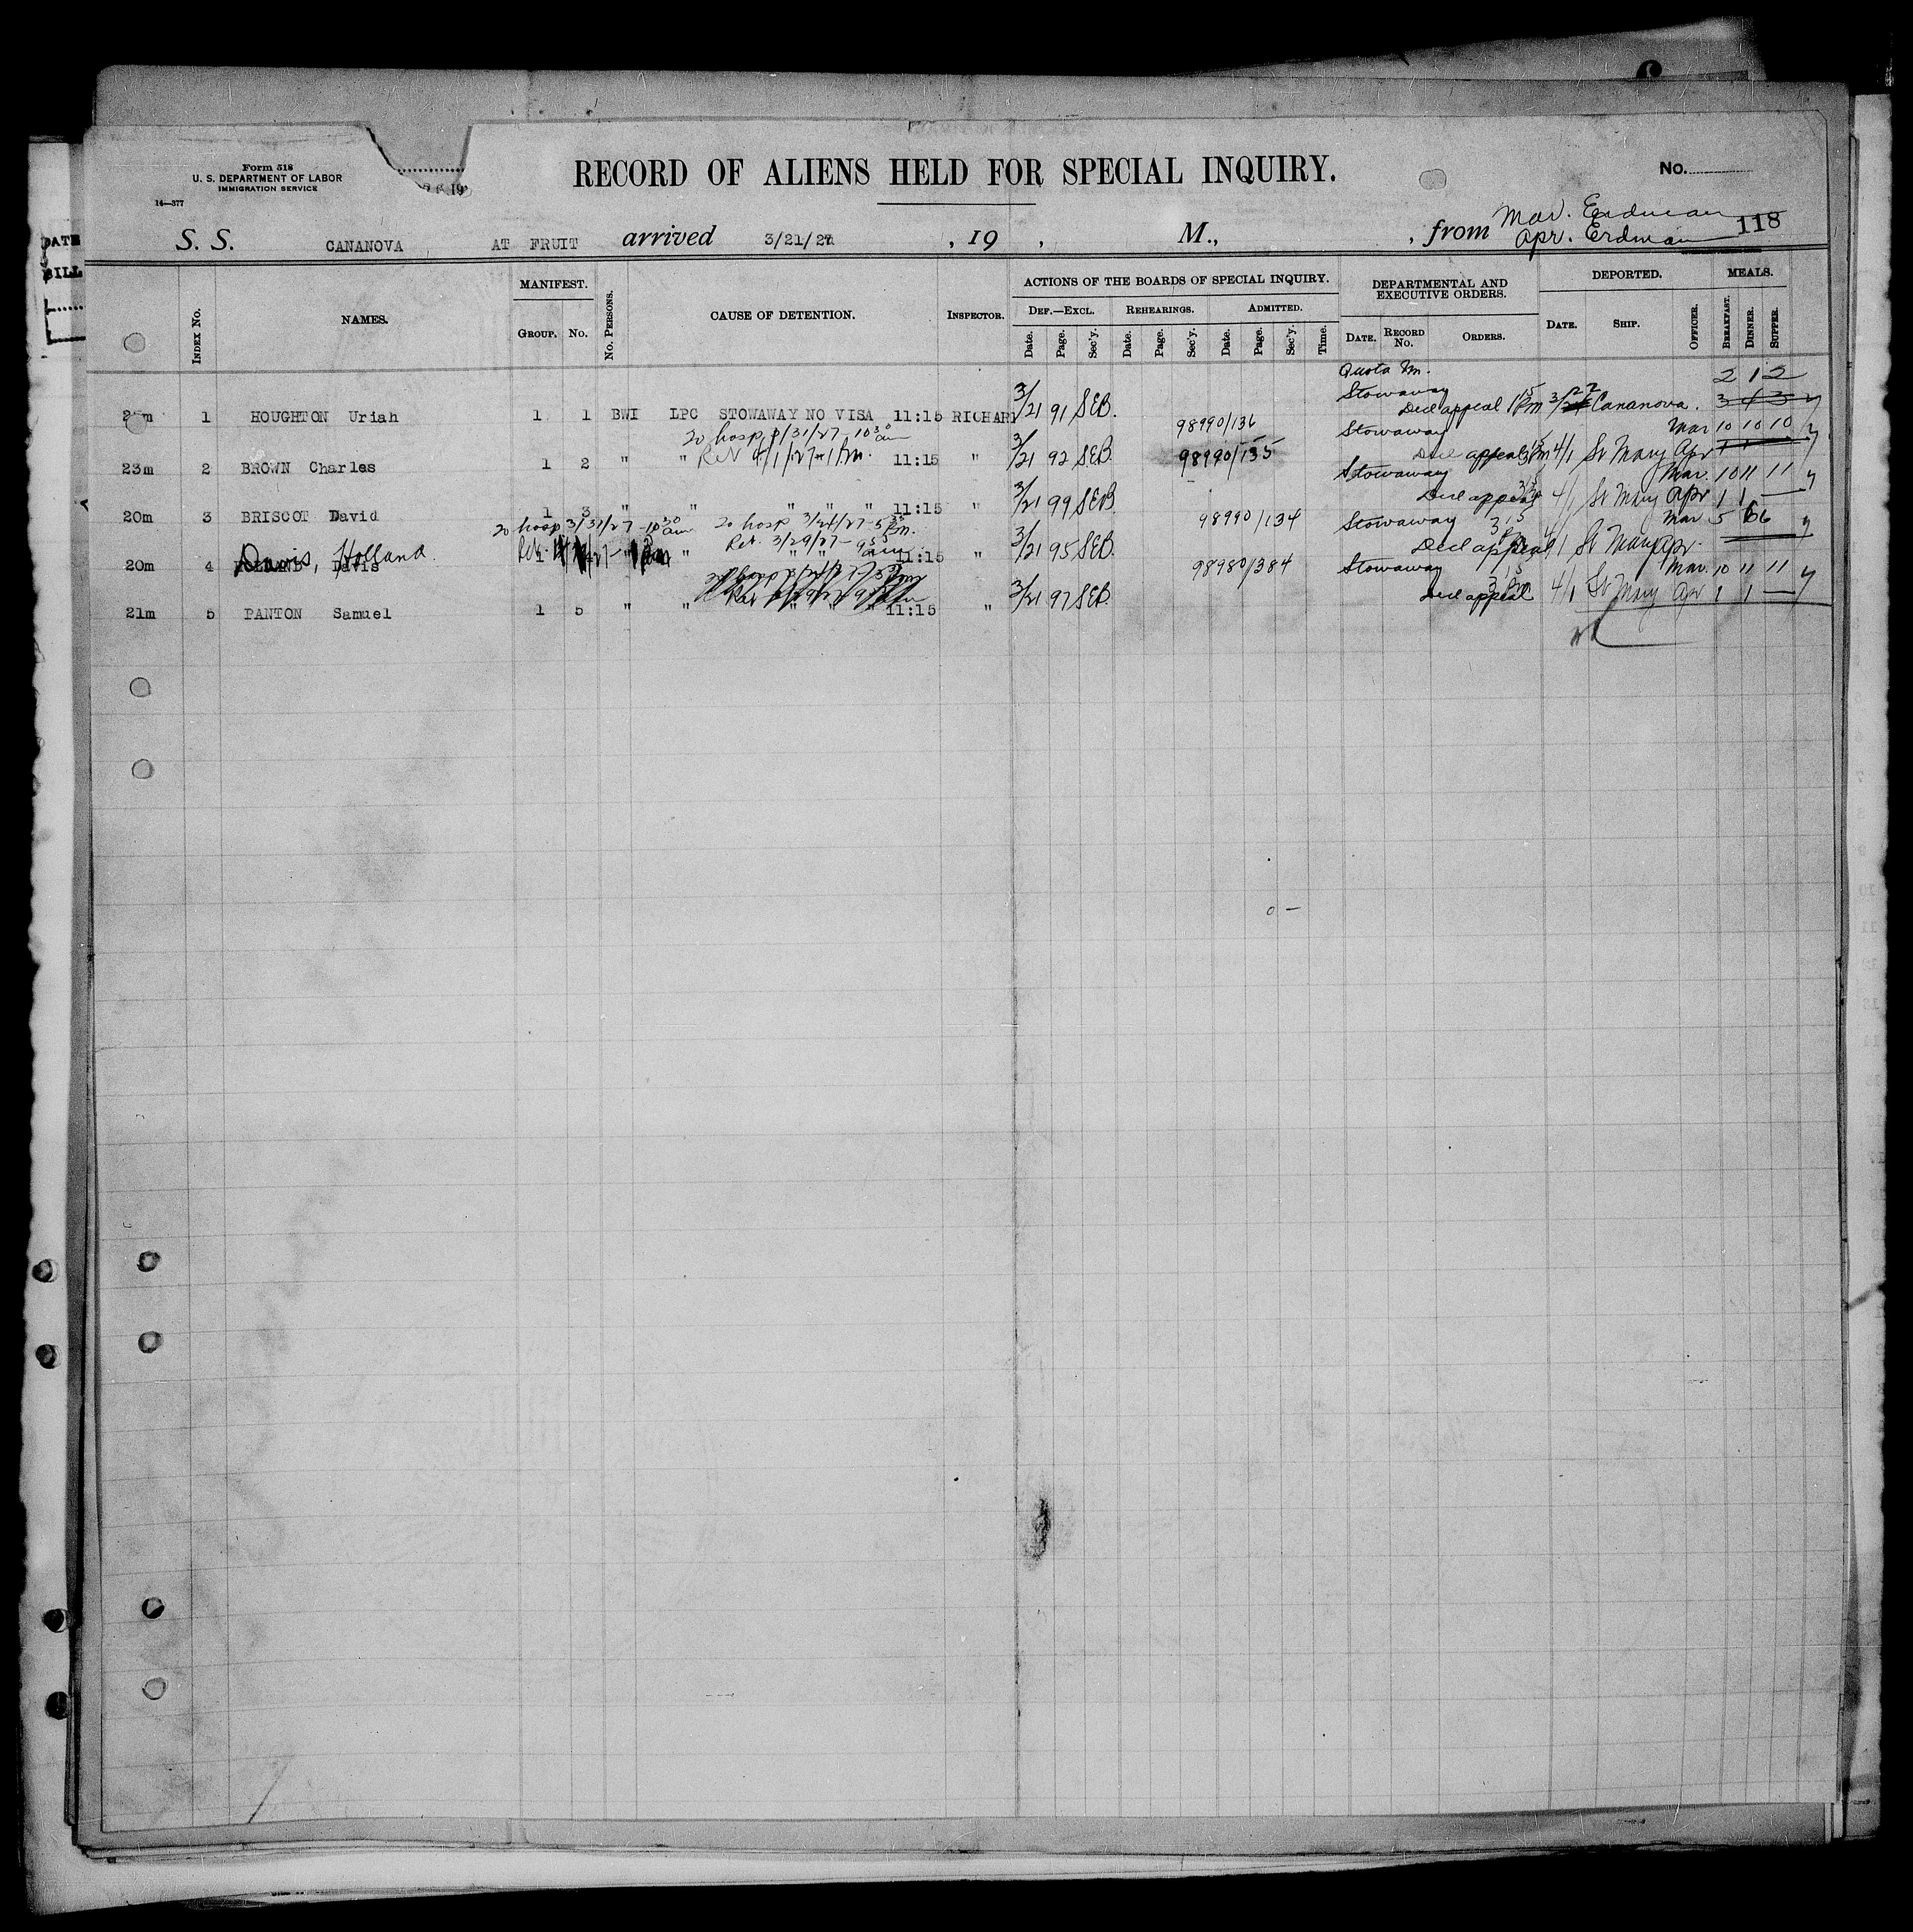 Form 518
U. S. DEPARTMENT OF LABOR
IMMIGRATION SERVICE
14—377
RECORD OF ALIENS HELD FOR SPECIAL INQUIRY.
No.
S. S. CANANOVA AT FRUIT arrived 3/21/27 , 19 , M., , from Mar. Erdman
Apr. Erdman 118
DATE
BILL
INDEX No.
NAMES.
MANIFEST.
GROUP. No.
No. PERSONS.
CAUSE OF DETENTION.
INSPECTOR.
ACTIONS OF THE BOARDS OF SPECIAL INQUIRY.
DEF.—EXCL. REHEARINGS. ADMITTED.
Date. Page. Sec'y. Date. Page. Sec'y. Date. Page. Sec'y. Time.
DEPARTMENTAL AND EXECUTIVE ORDERS.
DATE. RECORD No. ORDERS.
DEPORTED.
DATE. SHIP. OFFICER.
MEALS.
BREAKFAST. DINNER. SUPPER.
Quota Im. 2 1 2
Stowaway
1 HOUGHTON Uriah 1 1 BWI LPC STOWAWAY NO VISA 11:15 RICHAR 3/21 91 SEB. Decl appeal Cananova. 3 4 3
98990/136 Stowaway Mar 10 10 10
To hosp 3/31/27 10 30 am
Ret 4/1/27 - 1 P.m.
23m 2 BROWN Charles 1 2 " " 11:15 " 3/21 92 SEB 98990/135 Decl appeal 4/1 St Mary Apr 1 1
Stowaway Mar. 10 11 11
20m 3 BRISCOT David 1 3 " " " " " 11:15 " 3/21 99 SEB Decl appeal 4/1 St Mary Apr 1 1 —
98990/134 Stowaway Mar 5 6
To hosp 3/31/27 - 10 30 am To hosp 3/24/27 - 5 35 P.m.
Ret. 3/29/27 - 9 55 am
Davis, Holland
20m 4 HOLLAND Davis " " " " 11:15 " 3/21 95 SEB. Decl appeal 4/1 St Mary Apr.
98980/384 Stowaway Mar. 10 11 11
21m 5 PANTON Samuel 1 5 " " " " " 11:15 " 3/21 97 SEB. Decl appeal 4/1 St Mary Apr 1 1 —